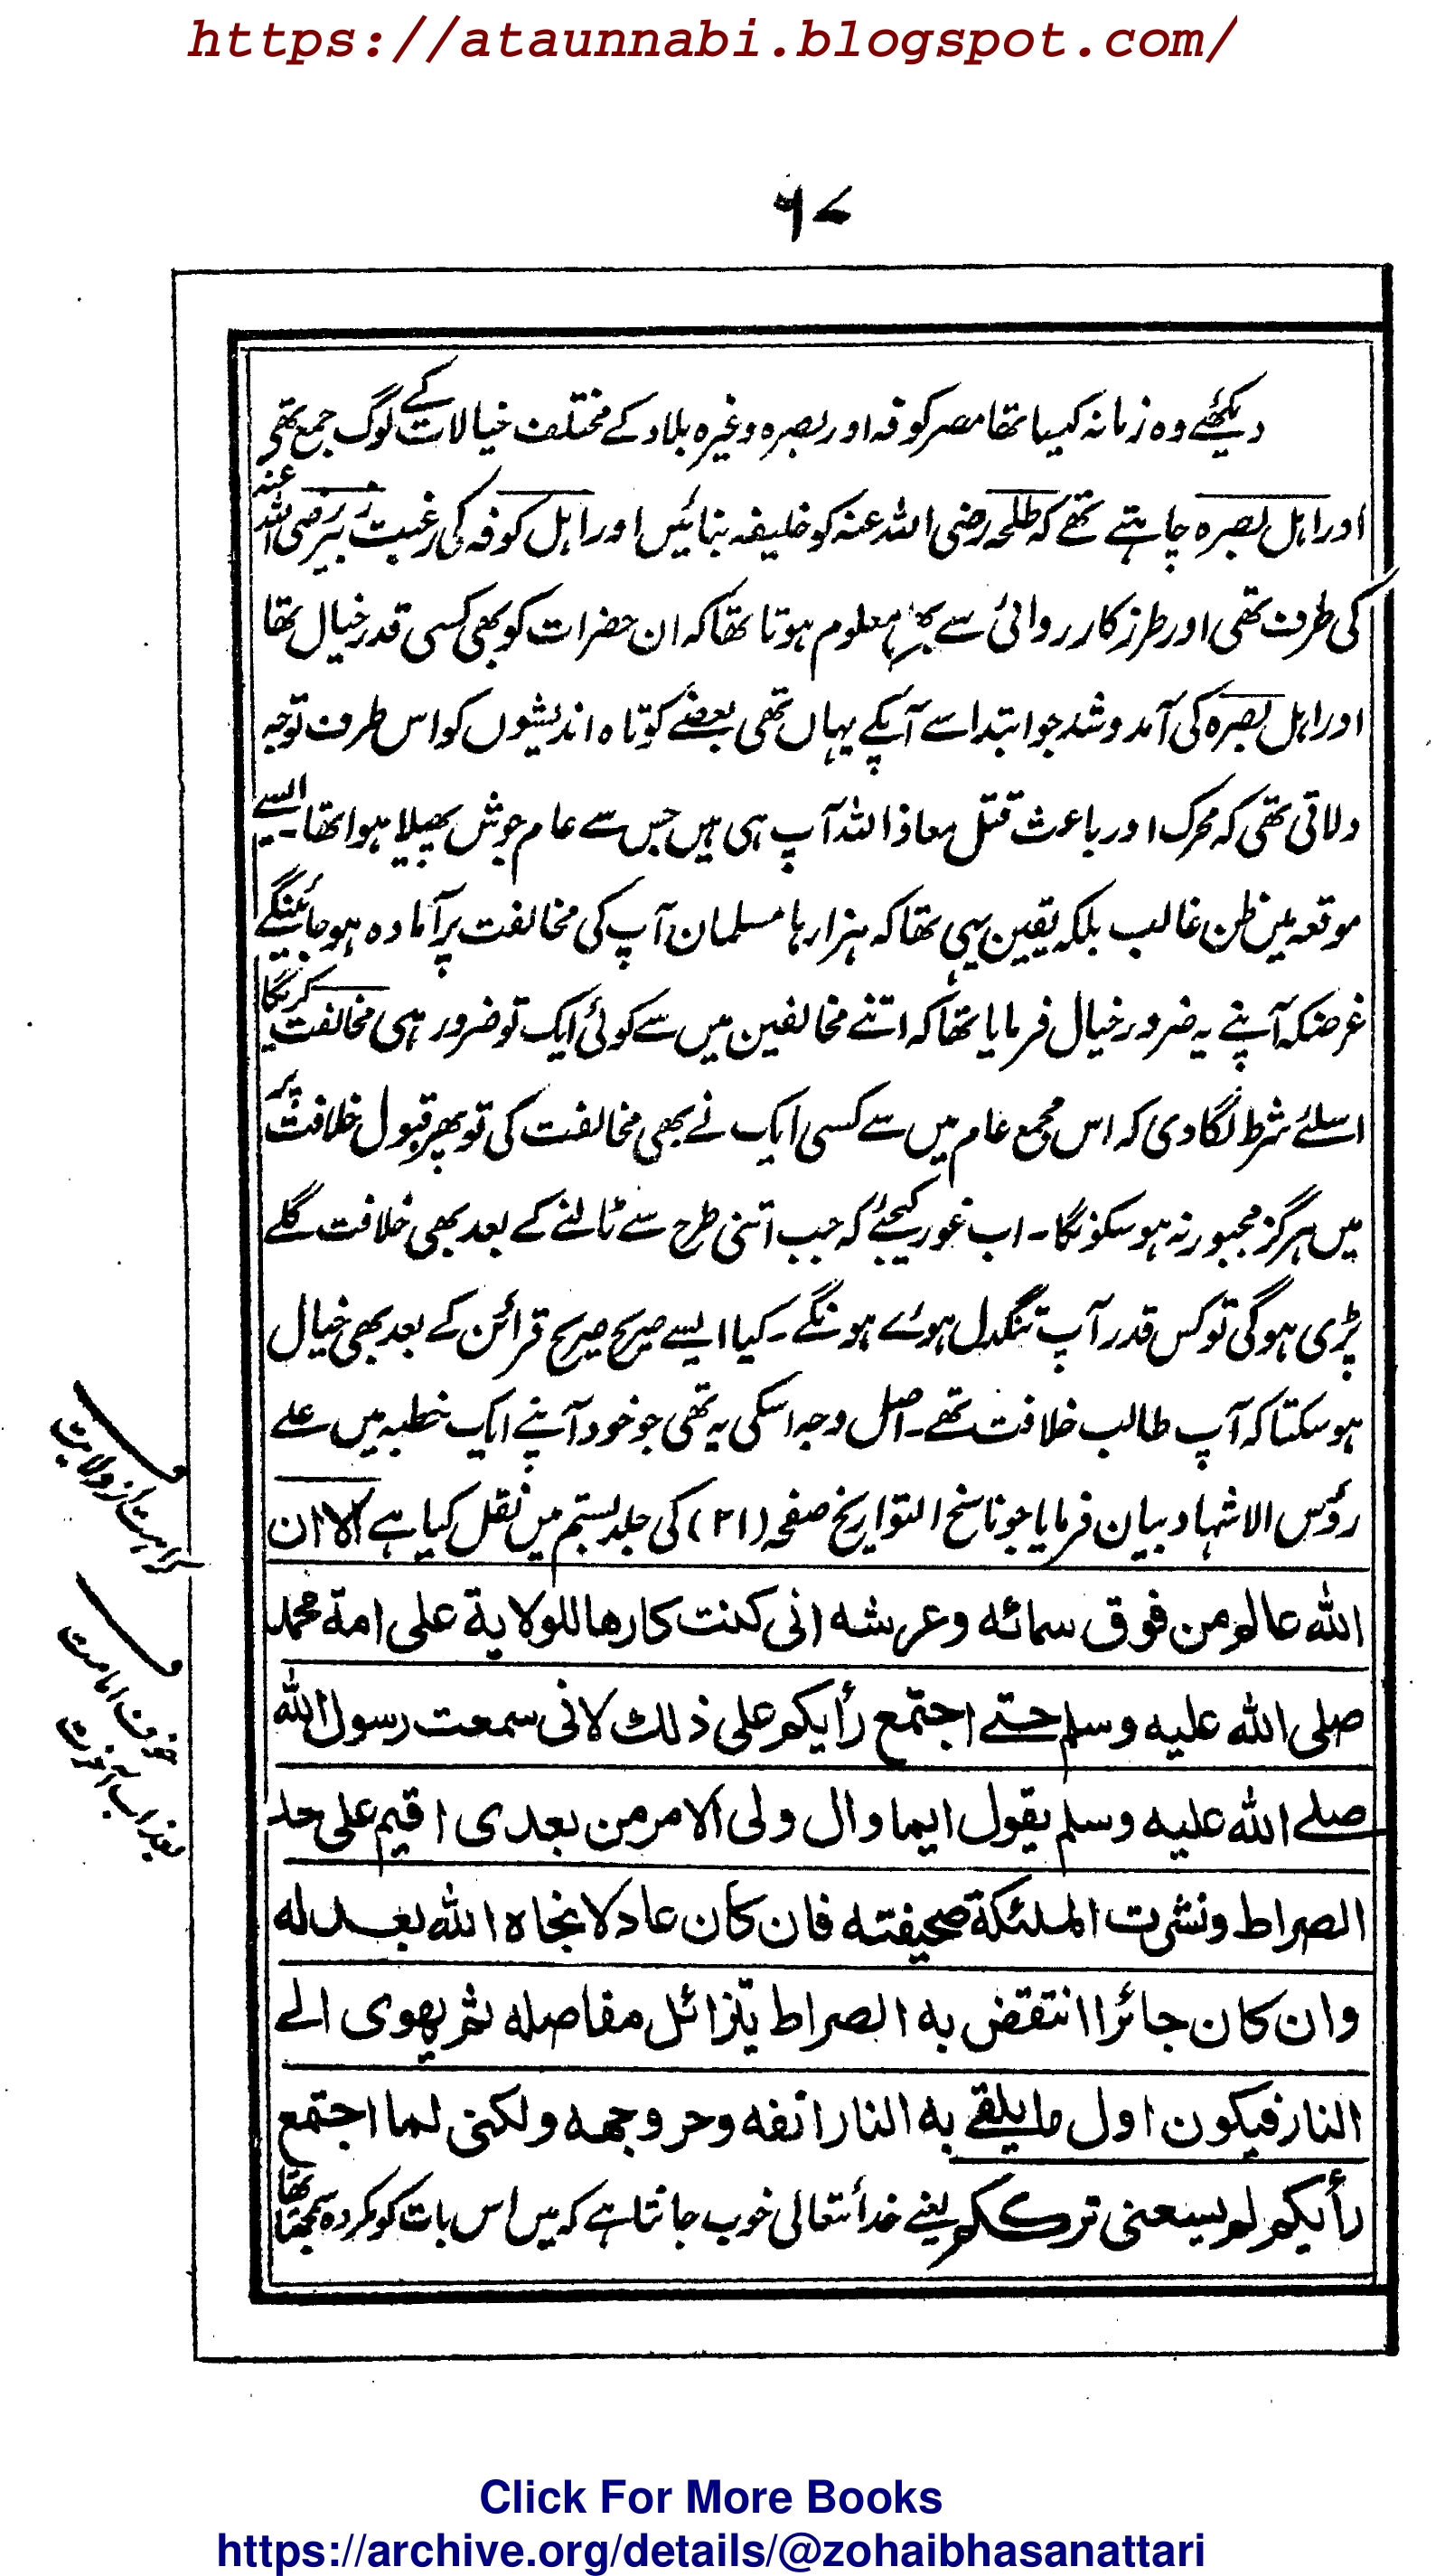 https://ataunnabi.blogspot.com/
۶۷
دیکھئے وہ زمانہ کیسا تھا مصر کوفہ اور بصرہ وغیرہ بلاد کے مختلف خیالات کے لوگ جمع تھی
اور اہل بصرہ چاہتے تھے کہ طلحہ رضی اللہ عنہ کو خلیفہ بنائیں اور اہل کوفہ کی رغبت زبیر رضی اللہ عنہ
کی طرف تھی اور طرز کارروائی سے بھی معلوم ہوتا تھا کہ ان حضرات کو بھی کسی قدر خیال تھا
اور اہل بصرہ کی آمد و شد جو ابتدا سے آپکے یہاں تھی بعضے کوتاہ اندیشوں کو اس طرف توجہ
دلاتی تھی کہ محرک اور باعث قتل معاذ اللہ آپ ہی ہیں جس سے عام جوش پھیلا ہوا تھا۔ ایسے
موقعہ میں ظن غالب بلکہ یقین یہی تھا کہ ہزارہا مسلمان آپ کی مخالفت پر آمادہ ہو جائینگے
غرضکہ آپنے یہ ضرور خیال فرمایا تھا کہ اتنے مخالفین میں سے کوئی ایک تو ضرور ہی مخالفت کریگا
اسلئے شرط لگا دی کہ اس مجمع عام میں سے کسی ایک نے بھی مخالفت کی تو پھر قبول خلافت پر
میں ہرگز مجبور نہ ہو سکونگا۔ اب غور کیجئے کہ جب اتنی طرح سے ٹالنے کے بعد بھی خلافت گلے
پڑی ہوگی تو کس قدر آپ تنگدل ہوے ہونگے۔ کیا ایسے صریح صریح قرائن کے بعد بھی خیال
ہو سکتا کہ آپ طالب خلافت تھے۔ اصل وجہ اسکی یہ تھی جو خود آپنے ایک خطبہ میں علے
رؤس الاشہاد بیان فرمایا جو ناسخ التواریخ صفحہ (۲۱) کی جلد بستم میں نقل کیا ہے الا ان
اللہ عالم من فوق سمائه وعرشه انی کنت کارھا للولایة علی امة محمد
صلی اللہ علیه وسلم حتے اجتمع رأیکم علی ذلك لانی سمعت رسول اللہ
صلے اللہ علیه وسلم یقول ایما وال ولی الامر من بعدی اقیم علی حد
الصراط ونشرت الملئکة صحیفته فان کان عادلا نجاہ اللہ بعدله
وان کان جائرا انتقض به الصراط تتزائل مفاصله ثم یھوی الے
النار فیکون اول ما یلقے به النار انفه وحر وجھه ولکنی لما اجتمع
رأیکم لم یسعنی ترککم یعنے خدا تعالی خوب جانتا ہے کہ میں اس بات کو مکروہ سمجھتا تھا
کراہت از ولایت
خوف امامت
بعذاب آخرت
Click For More Books
https://archive.org/details/@zohaibhasanattari